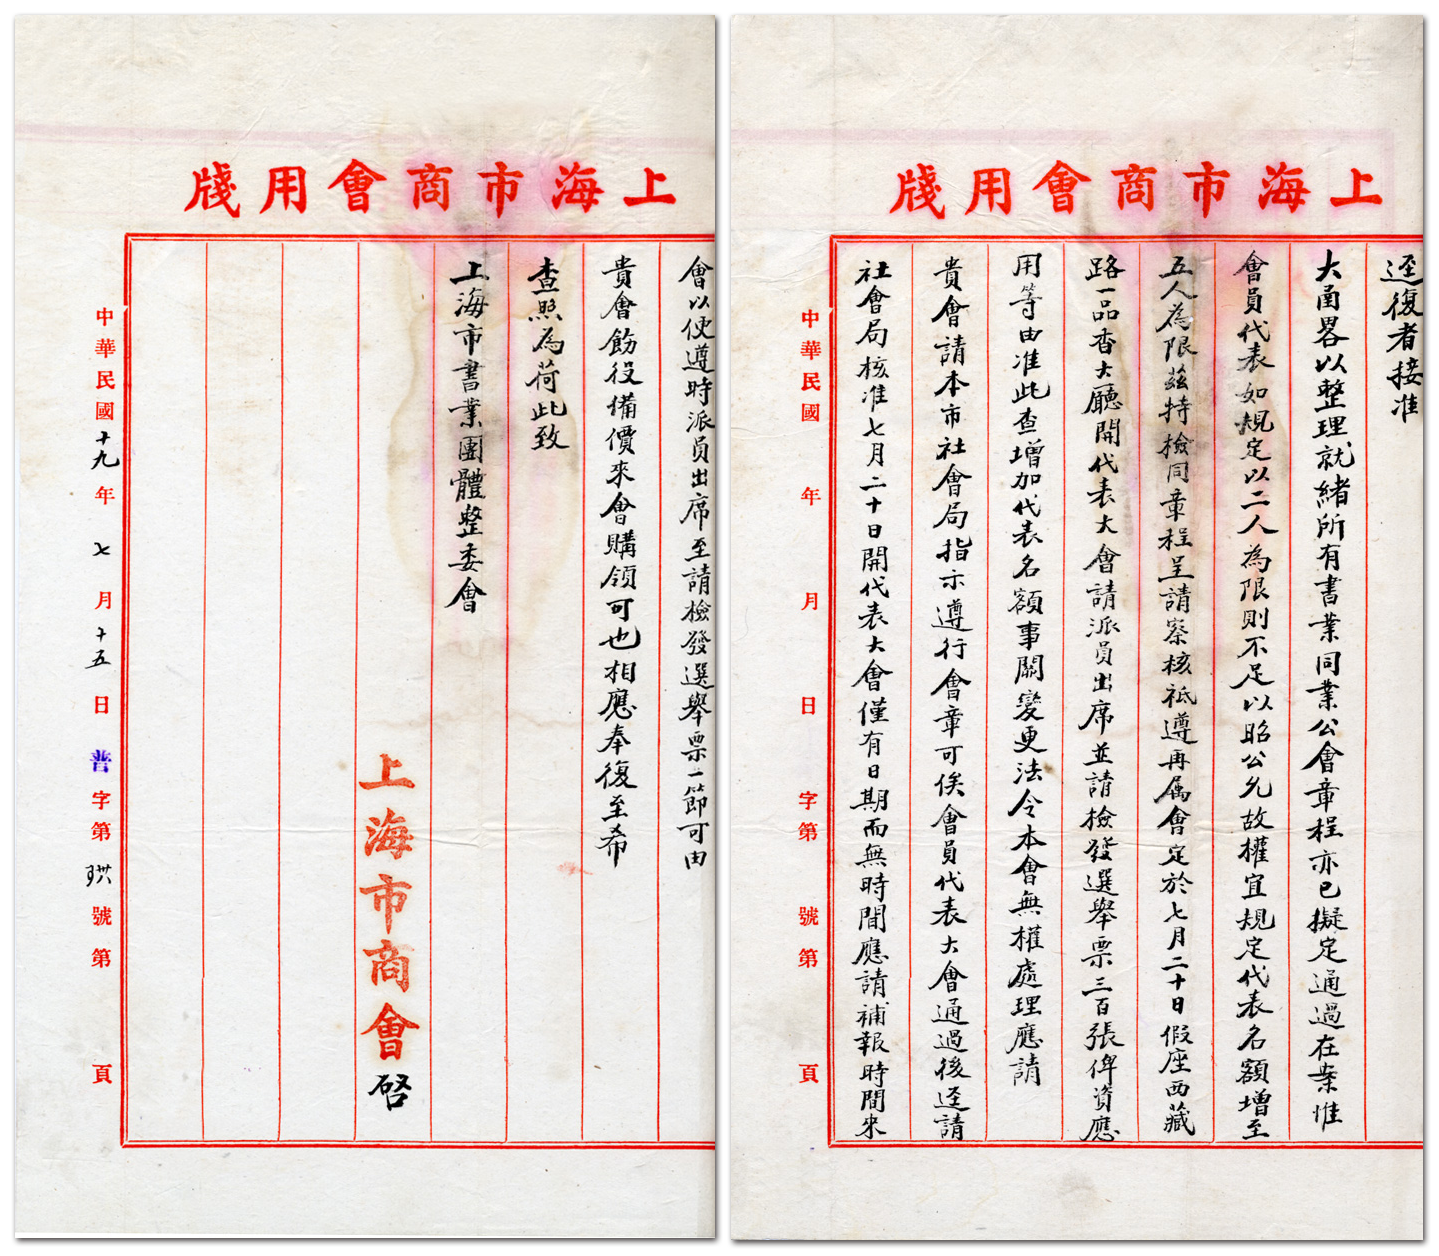 上海市商會用牋
逕復者接准
大函畧以整理就緒所有書業同業公會章程亦已擬定通過在案惟
會員代表如規定以二人為限則不足以昭公允故權宜規定代表名額增至
五人為限茲特檢同章程呈請察核祗遵再屬會定於七月二十日假座西藏
路一品香大廳開代表大會請派員出席並請檢發選舉票三百張俾資應
用等由准此查增加代表名額事關變更法令本會無權處理應請
貴會請本市社會局指示遵行會章可俟會員代表大會通過後逕請
社會局核准七月二十日開代表大會僅有日期而無時間應請補報時間來
中華民國 年 月 日 字第 號第 頁
上海市商會用牋
會以便遵時派員出席至請檢發選舉票一節可由
貴會飭役備價來會購領可也相應奉復至希
查照為荷此致
上海市書業團體整委會
上海市商會啓
中華民國十九年七月十五日普字第 號第 頁